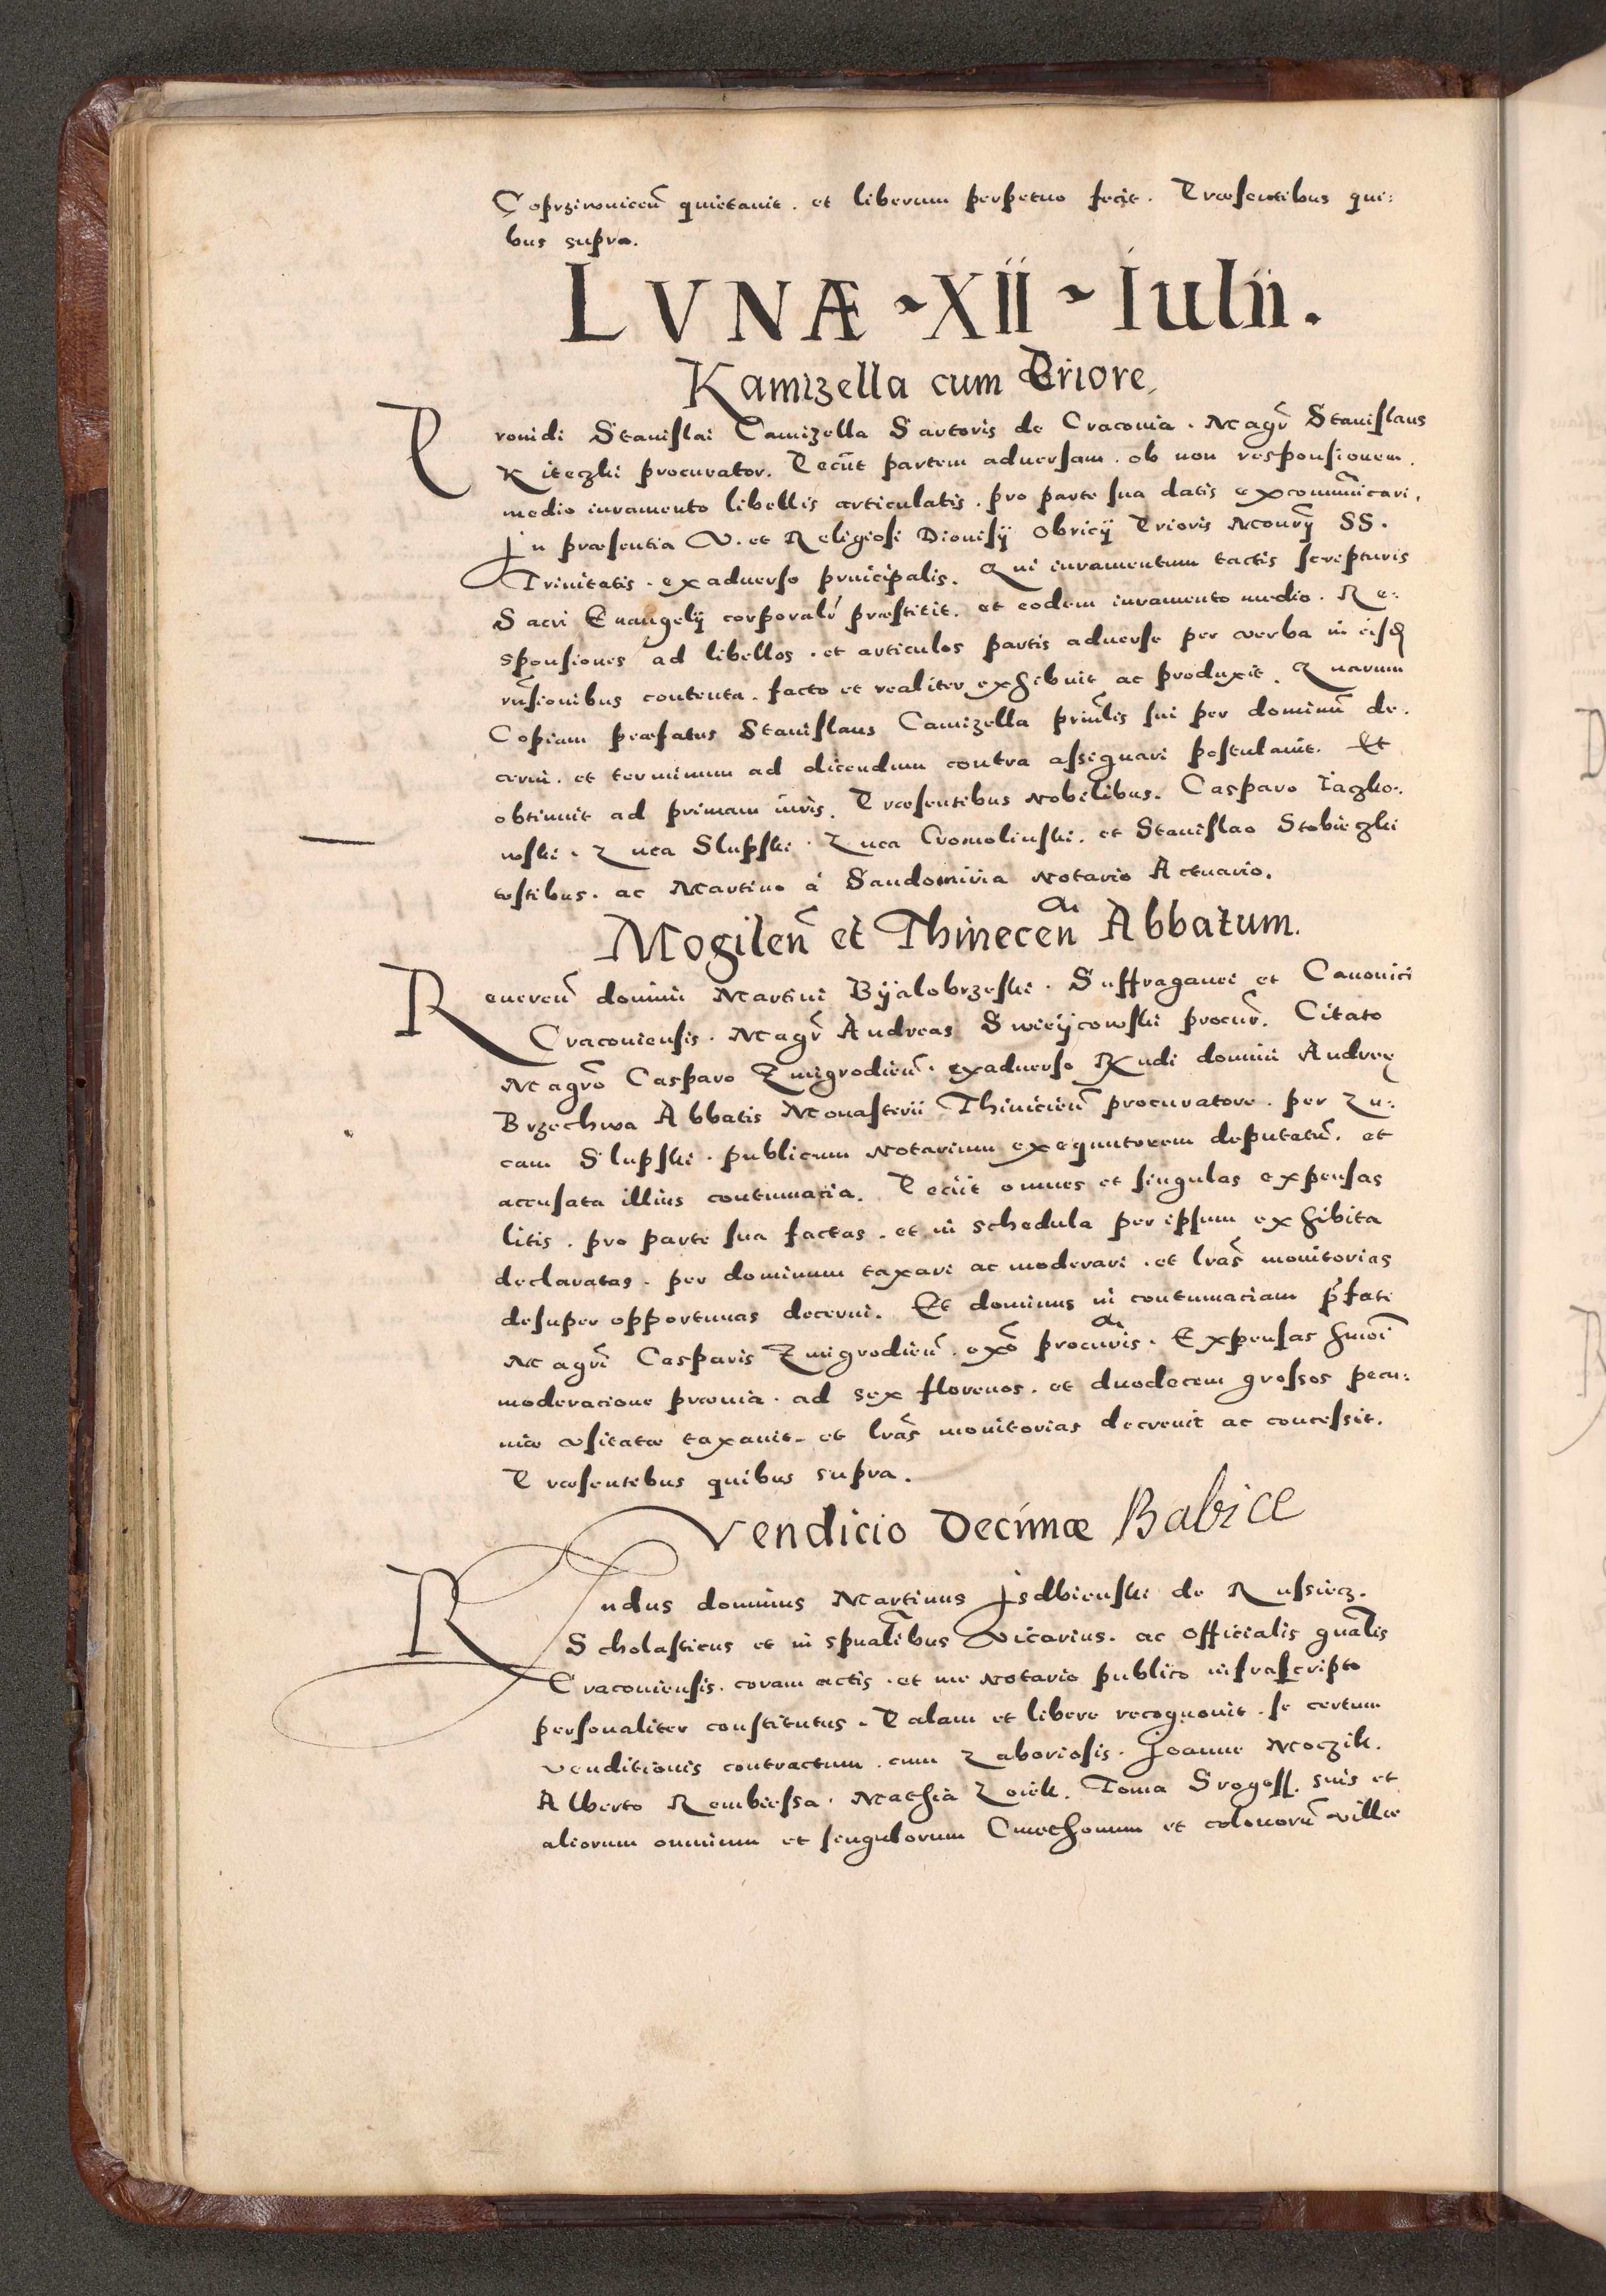 Coprzivnicen̄ quietauit. et liberum perpetuo fecit. Præsentibus qui:
bus supra.
LVNÆ ~ XII ~ Iulii.
Kamizella cum Priore
Prouidi Stanislai Camizella Sartoris de Craconia. Magr̄ Stanislaus
Kiteczki procurator. Peciit partem aduersam. ob non responsionem.
medio iuramento libellis articulatis. pro parte sua datis excommunicari.
In præsentia V. et Religiosi Dionisÿ Obricÿ Prioris Monrÿ SS.
Trinitatis. exaduerso principalis. Qui iuramentum tactis scripturis
Sacri Euangelÿ corporalr̄ præstitit. et eodem iuramento medio. Re:
sponsiones ad libellos. et articulos partis aduerse per verba in eisd
rn̄sionibus contenta. facto et realiter exhibuit ac produxit. Quarum
Copiam præfatus Stanislaus Camizella prin̄lis sui per dominū de:
cerni. et terminum ad dicendum contra assignari postulauit. Et
obtinuit ad primam iuris. Præsentibus Nobilibus. Casparo Iaczko:
wski. Luca Slupski. Luca Cromolinski. et Stanislao Stobieczki
testibus. ac Martino à Sandomiria Notario Actuario.
Mogilen̄ et Thinecen̄ Abbatum.
Reueren̄ domini Martini Byalobrzeski. Suffraganei et Canonici
Craconiensis. Magr̄ Andreas Swieÿcowski procur̄. Citato
Magrō Casparo Zmigrodien̄. exaduerso Rndi domini Andreę
Brzechwa Abbatis Monasterii Thinicien̄ procuratore. per Lu:
cam Slupski. publicum Notarium exequutorem deputatū. et
accusata illius contumacia. Peciit omnes et singulas expensas
litis. pro parte sua factas. et in schedula per ipsum exhibita
declaratas. per dominum taxari ac moderari. et lrās monitorias
desuper opportunas decerni. Et dominus in contumaciam p̄fati
Magrī Casparis Zmigrodien̄. exō procuris. Expensas hmōi
moderacione præuia. ad sex florenos. et duodecem grossos pecu:
niæ vsitatæ taxauit. et lrās monitorias decreuit ac concessit.
Præsentibus quibus supra.
Vendicio Decimæ Babice
Rndus dominus Martinus Isdbienski de Russiecz.
Scholasticus et in spualibus Vicarius. ac Officialis gnālis
Craconiensis. coram actis. et me Notario publico infrascripto
personaliter constitutus. Palam et libere recognouit. se certum
venditionis contractum. cum Laboriosis. Joanne Moczik.
Alberto Rembiessa. Mathia Zoiek. Toma Srogoss. suis et
aliorum omnium et singulorum Cmethonum et colonorū villæ